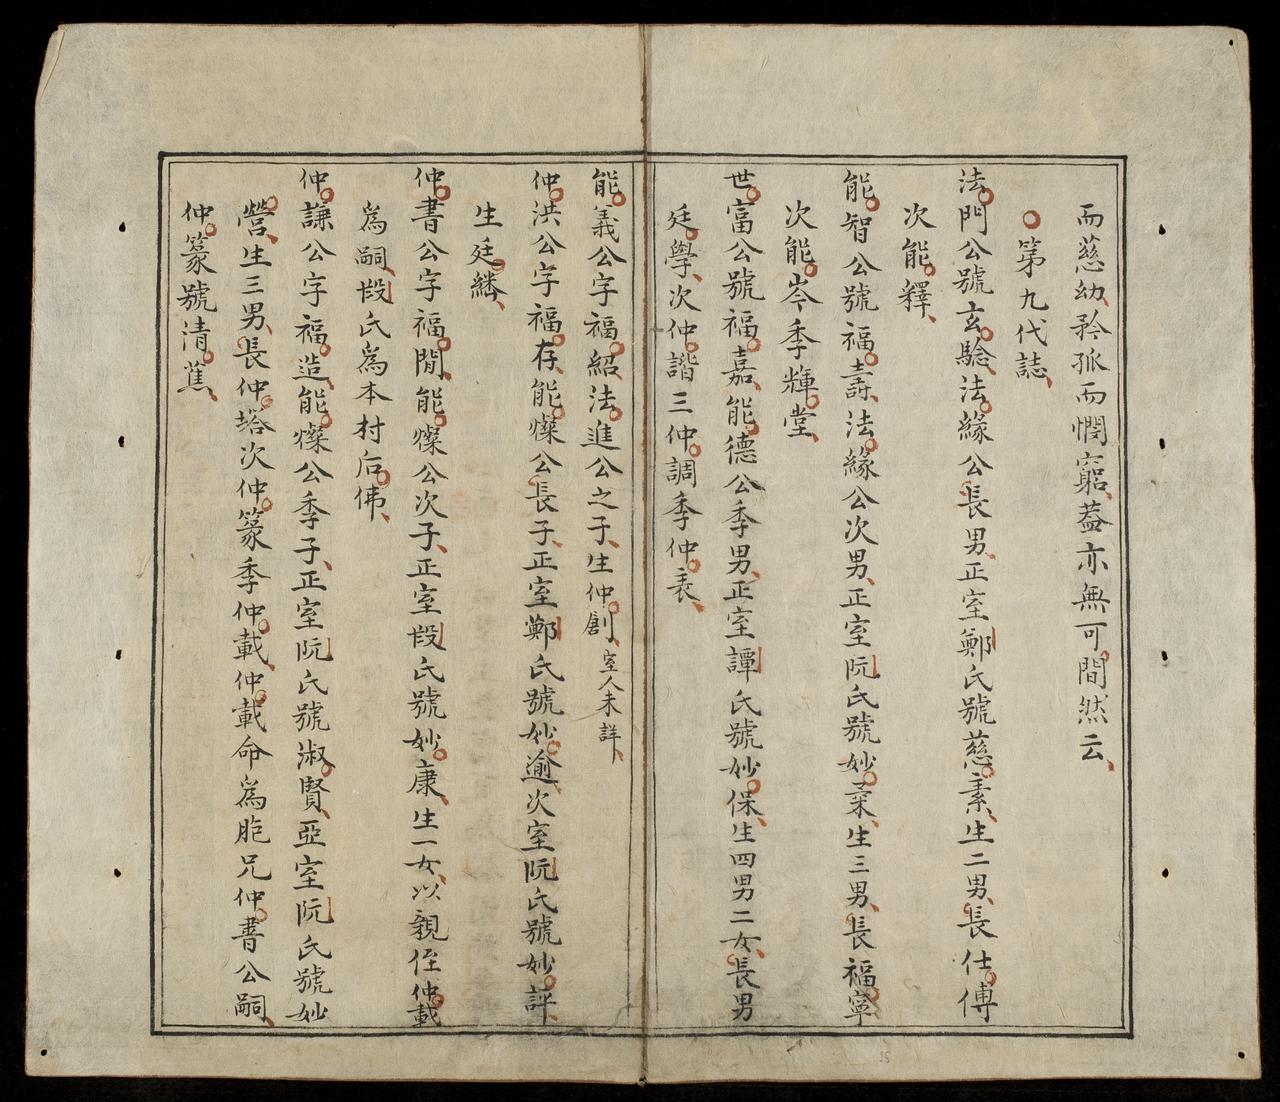 而慈幼矜孤而憫窮葢亦無可間然云
第九代誌
法門公號玄驗法緣公長男正室鄭氏號慈素生二男長仕傅
次能釋
能智公號福壽法緣公次男正室阮氏號妙桒生三男長福寧
次能岑季輝堂
世富公號福嘉能德公季男正室譚氏號妙保生四男二女長男
廷學次仲諧三仲調季仲表
能義公字福紹法進公之子生仲創室人未詳
仲洪公字福存能燦公長子正室鄭氏號妙逾次室阮氏號妙評
生廷繙
仲書公字福閒能燦公次子正室段氏號妙康生一女以親侄仲載
爲嗣段氏爲本村后佛
仲謙公字福造能燦公季子正室阮氏號淑賢亞室阮氏號妙
營生三男長仲塔次仲篆季仲載仲載命爲胞兄仲書公嗣
仲篆號清蕉